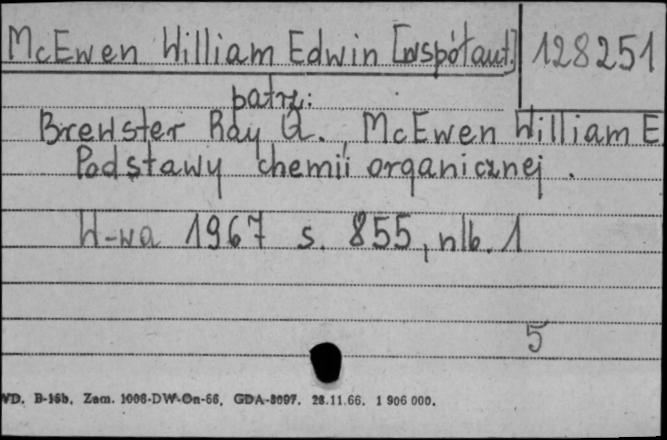 McEwen William Edwin [współaut.] 128251
patrz:
Brewster Ray Q., McEwen William E
Podstawy chemii organicznej.
W-wa 1967 s. 855, nlb. 1
5
WD. B-16b. Zam. 1006-DW-On-66, GDA-8097. 28.11.66. 1 906 000.